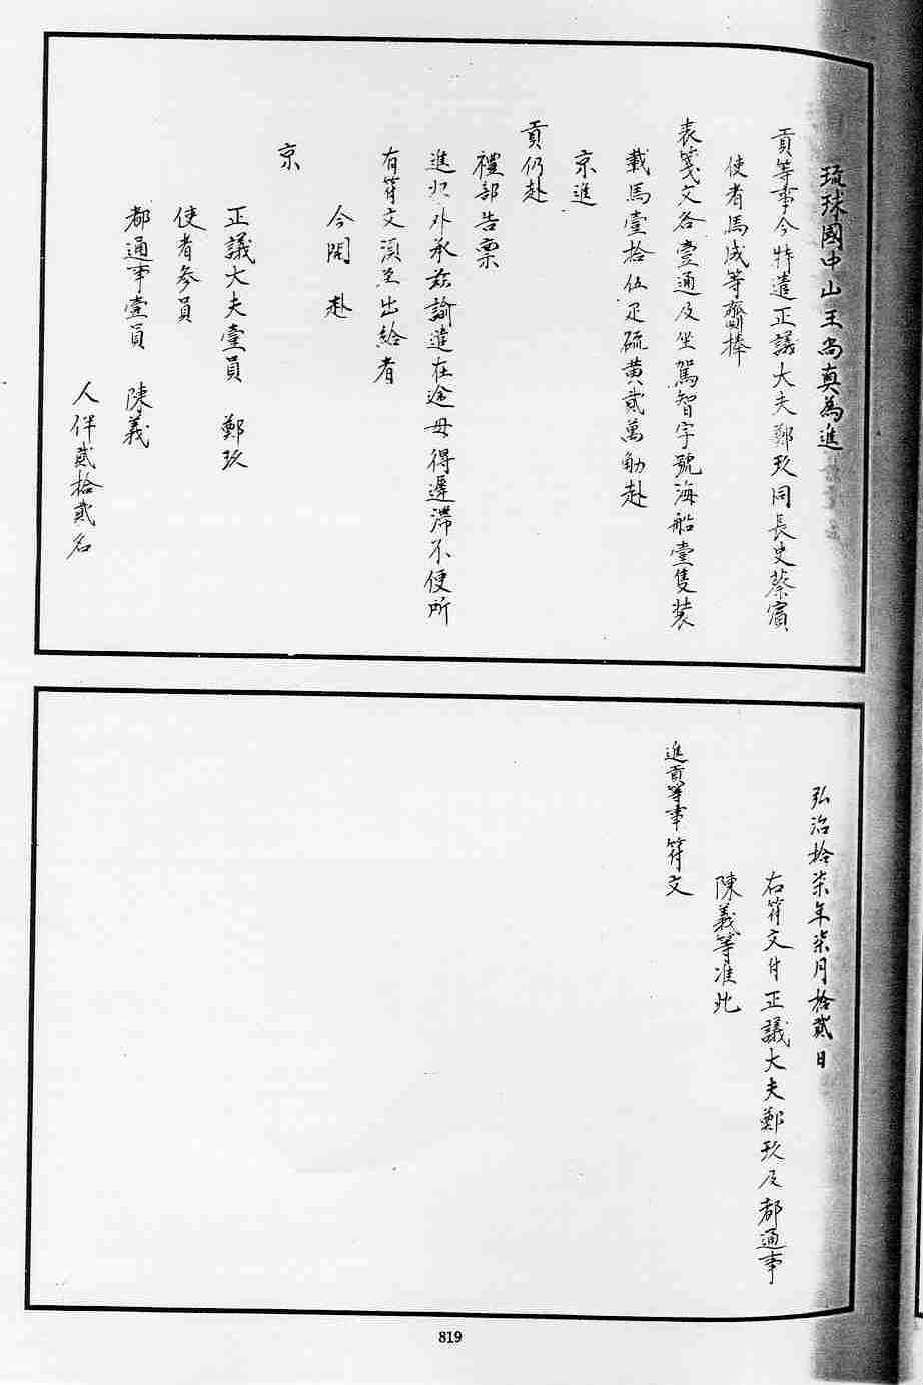 琉球國中山王尚真為進
貢等事今特遣正議大夫鄭玖同長史蔡賓
使者馬成等齎捧
表箋文各壹通及坐駕智字號海船壹隻裝
載馬壹拾伍疋硫黄貳萬觔赴
京進
貢仍赴
禮部告稟
進收外承茲諭遣在途毋得遲滯不便所
有符文須至出給者
今開 赴
京
正議大夫壹員 鄭玖
使者參員
都通事壹員 陳義
人伴貳拾貳名
弘治拾柒年柒月拾貳日
右符文付正議大夫鄭玖及都通事
陳義等准此
進貢等事符文
819